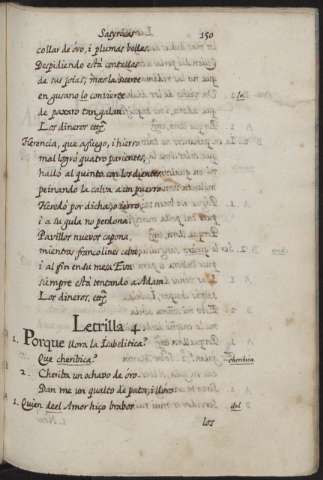 Satyricas 150
collar de òro, i plumas bellas
Despidiendo està centellas
de sus joias, mas la suerte
en gusano lo convierte
de paxaro tan galan
Los dineros etc.
Herencia, que a fuego, i hierro
mal logrò quatro parientes,
hallò al quinto con los dientes
peinando la calva a un puerro
Heredò por dicha, o ierro,
i a su gula no perdona:
Pavillos nuevos capona,
mientras francolines cebe,
i al fin en su mesa Eva
siempre està tentando a Adam
Los dineros, etc.
Letrilla 4.
1. Porque llora la Isabelitica?
Que cheribica?
cheribica
2. Cheriba un ochavo de oro
Dan me un qualto de pata, i lloro
1. Quien del Amor hiço brabos
del
los